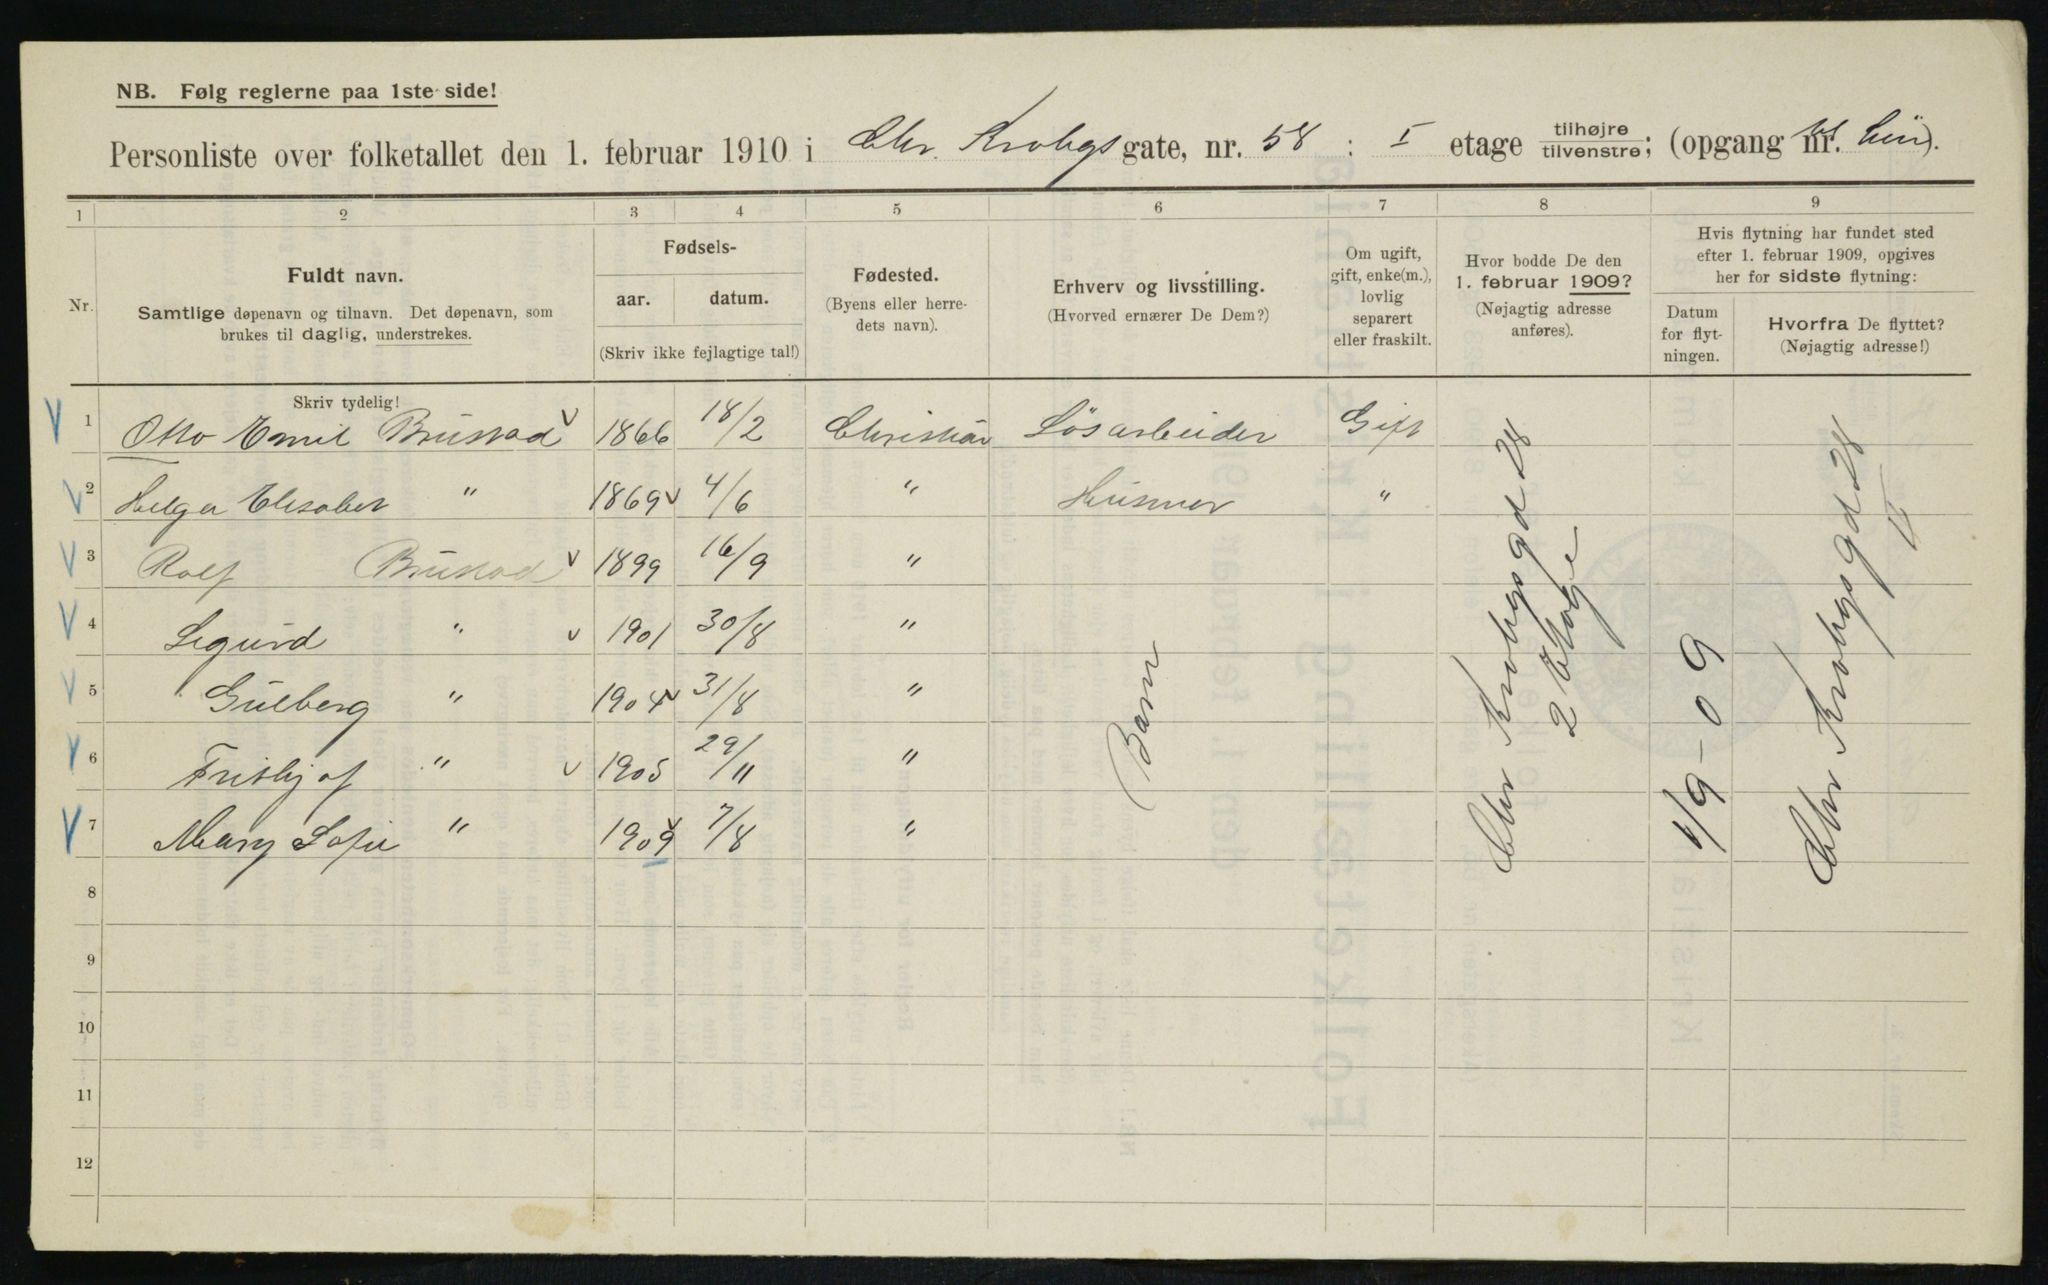 NB. Følg reglerne paa 1ste side!
Personliste over folketallet den 1. februar 1910 i Chr. Krohgs gate, nr. 58 : I etage tilhøjre tilvenstre; (opgang nr. ).
1 2 3 4 5 6 7 8 9
Nr.
Fuldt navn.
Samtlige døpenavn og tilnavn. Det døpenavn, som
brukes til daglig, understrekes.
Fødsels-
aar. datum.
(Skriv ikke fejlagtige tal!)
Fødested.
(Byens eller herre-
dets navn).
Erhverv og livsstilling.
(Hvorved ernærer De Dem?)
Om ugift,
gift, enke(m.),
lovlig
separert
eller fraskilt.
Hvor bodde De den
1. februar 1909?
(Nøjagtig adresse
anføres).
Hvis flytning har fundet sted
efter 1. februar 1909, opgives
her for sidste flytning:
Datum
for flyt-
ningen.
Hvorfra De flyttet?
(Nøjagtig adresse!)
Skriv tydelig!
1 Otto Emil Brustad 1866 18/2 Christian Løsarbeider Gift
2 Helga Elisabet " 1869 4/6 " Husmor "
3 Rolf Brustad 1899 16/9 "
4 Sigurd " 1901 30/8 "
5 Gulberg " 1904 31/8 "
6 Frithjof " 1905 29/11 "
7 Mary Sofie " 1909 7/8 "
Barn
Chr Krohgs gd 28
2 Etage
1/9 - 09
Chr Krohgs gd 28
II
8
9
10
11
12